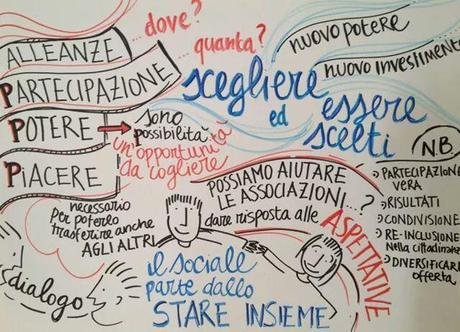 ALLEANZE
...dove?
PARTECIPAZIONE
quanta?
POTERE
sono
possibilità
PIACERE
un'opportunità
da cogliere
scegliere
ed
essere
scelti
nuovo potere
nuovo investimento
necessario
per poterlo
trasferire anche
AGLI ALTRI
POSSIAMO AIUTARE
LE ASSOCIAZIONI...?
dare risposta alle
ASPETTATIVE
NB
PARTECIPAZIONE
VERA
RISULTATI
CONDIVISIONE
RE-INCLUSIONE
nella cittadinanza
DIVERSIFICARE
offerta
dialogo
il sociale
parte dallo
STARE INSIEME